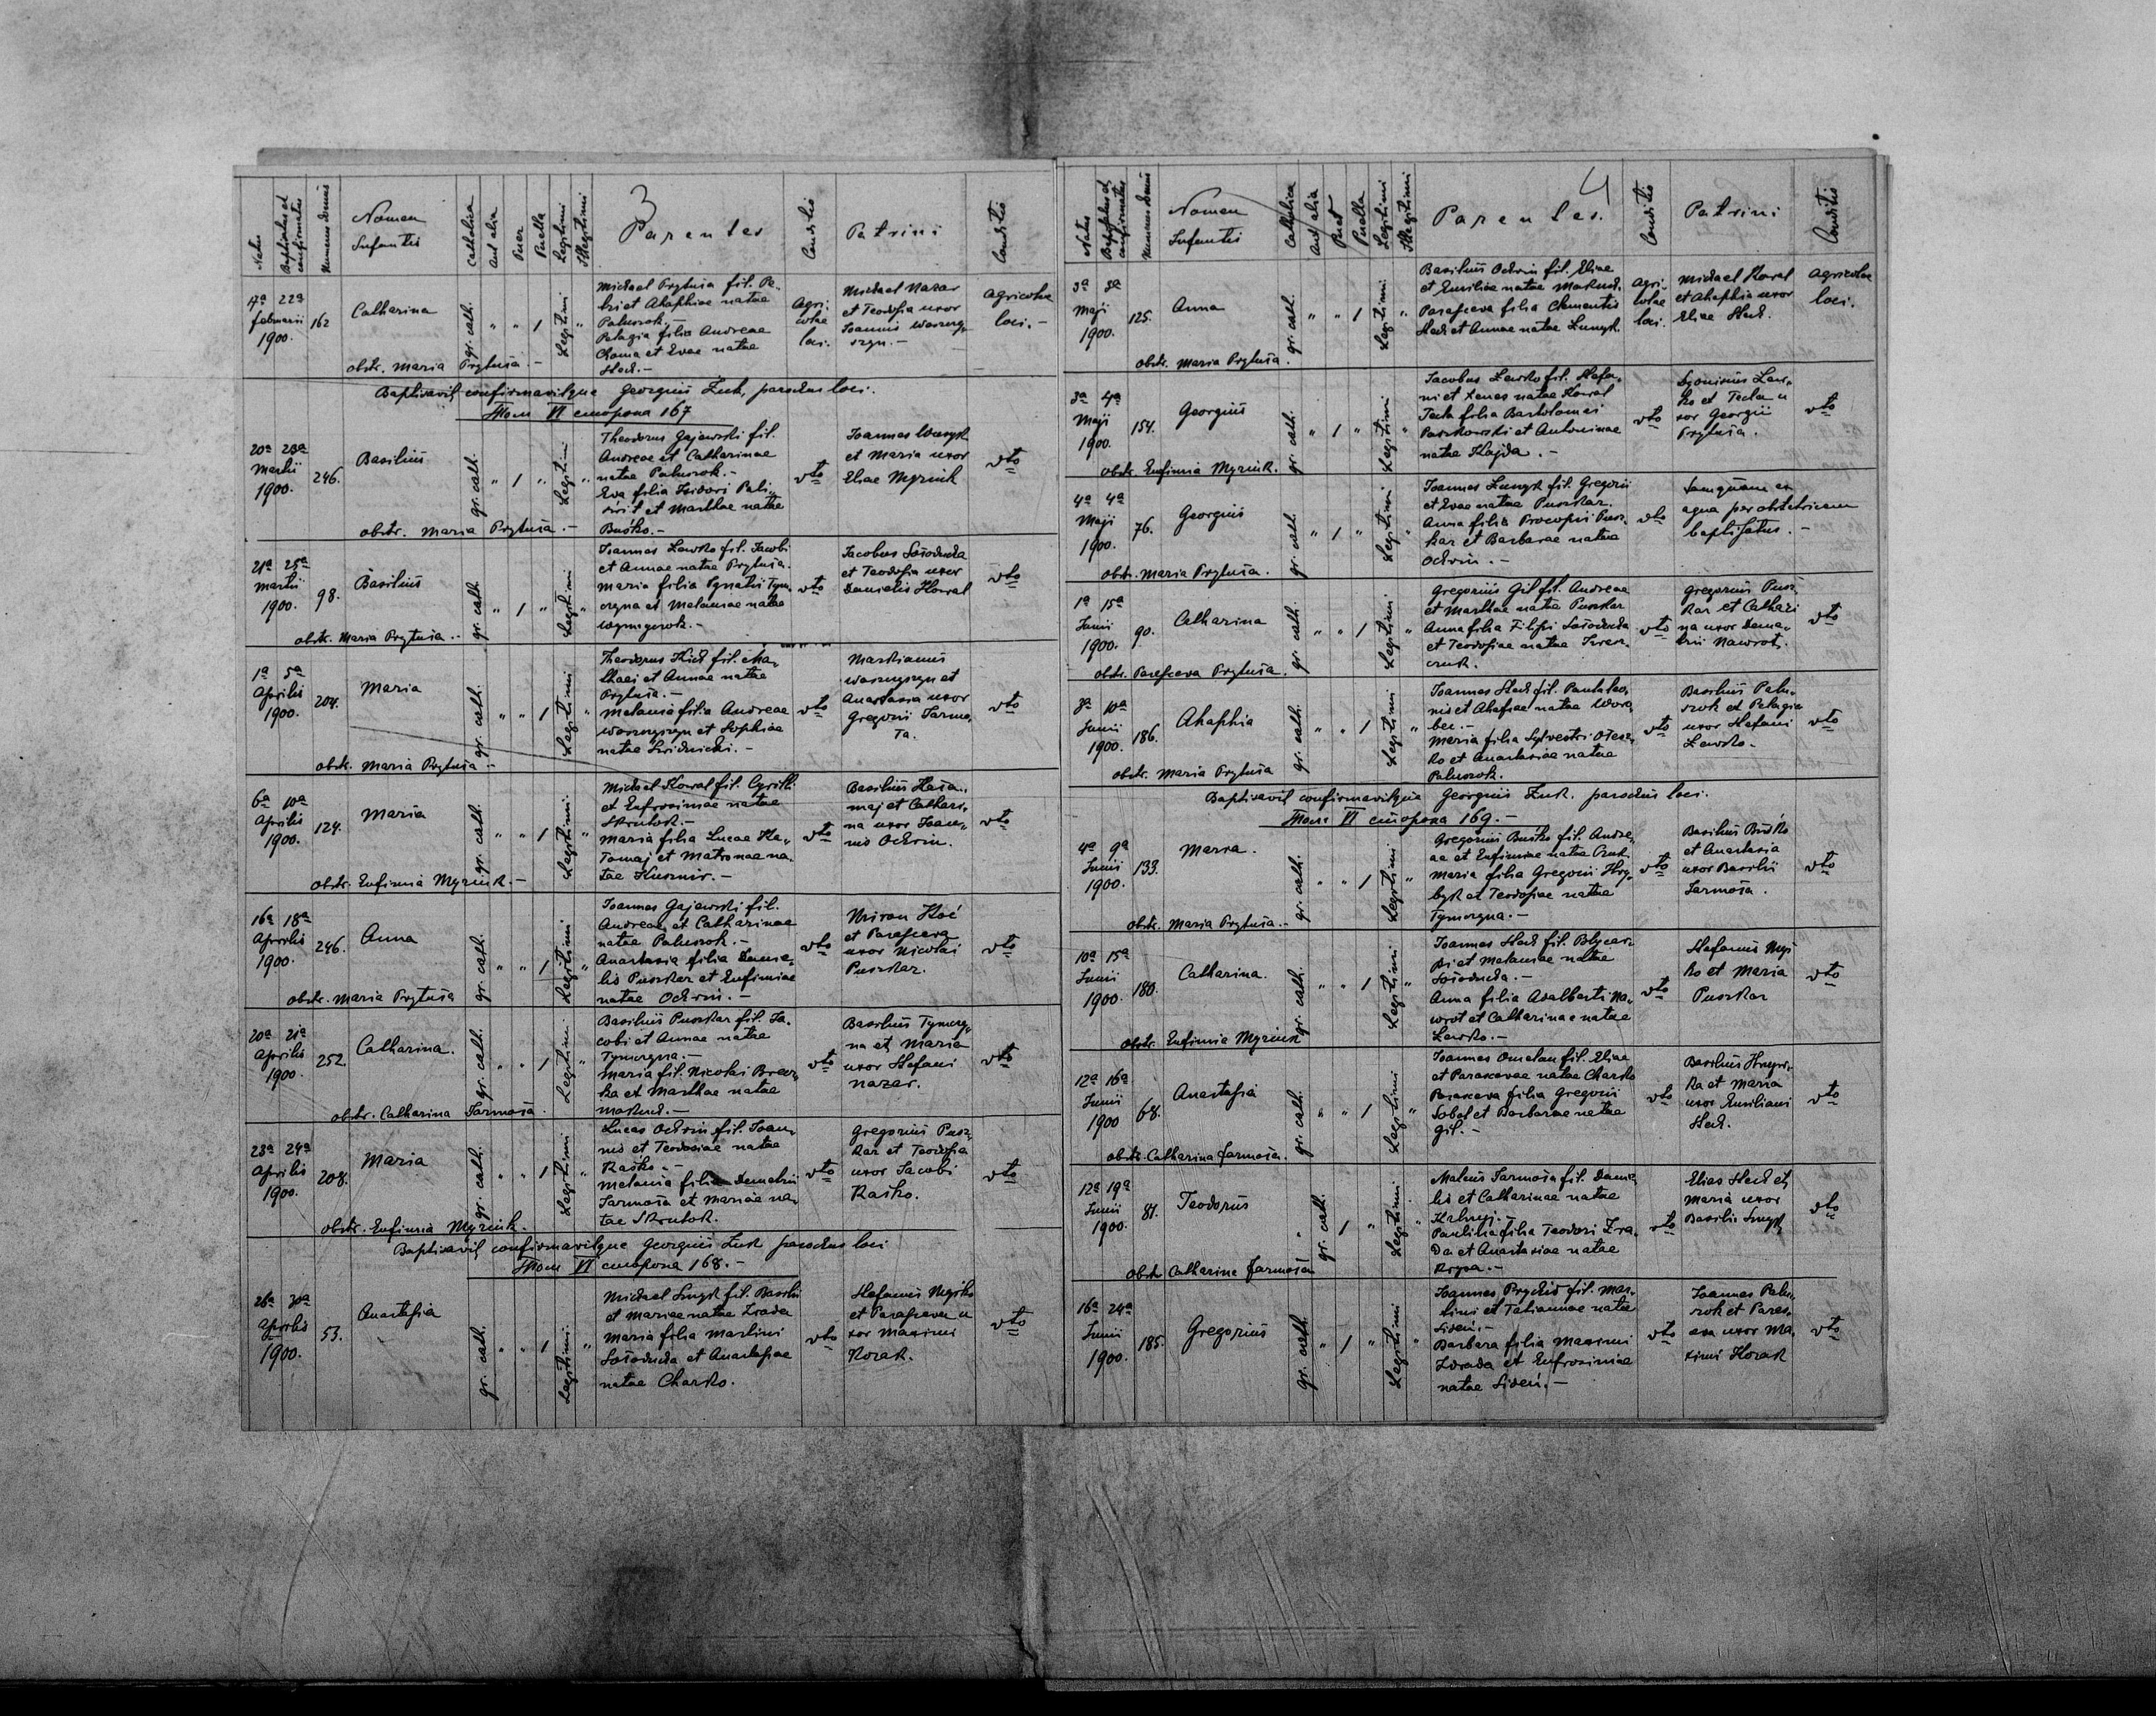 3
Natus
Baptisatus et confirmatus
Numerus domus
Nomen Infantis
Catholica
Aut alia
Puer
Puella
Legitimi
Illegitimi
Parentes
Conditio
Patrini
Conditio
17a 22a
februarii 162
1900.
Catharina
gr. cath. " " 1 Legitimi "
Michael Prytuła fil. Pe-
tri et Ahaphiae natae
Paluszok. -
Pelagia filia Andreae
Choma et Evae natae
Stec. -
Agri-
colae
loci.
Michael Nazar
et Teodosia uxor
Ioannis
Agricolae
loci. -
obstr. Maria Prytuła. -
Baptisavit confirmavitque Georgius Żuk, parochus loci.
Том VI сторона 167
20a 23a
Martii 246.
1900.
Basilius
gr. cath. " 1 " Legitimi "
Theodorus Gajewski fil.
Andreae et Catharinae
natae Paluszok. -
Eva filia Isidori Pali-
et Marthae natae
Buśko. -
dto
Ioannes Wasyk
et Maria uxor
Eliae Myrink
dto
obstr. Maria Prytuła. -
21a 25a
Martii 98.
1900.
Basilius
gr. cath. " 1 " Legitimi "
Ioannes Lewko fil. Iacobi
et Annae natae Prytuła.
Maria filia Ignatii Tym-
czyna et Melaniae natae
dto
Iacobus Sołoducha
et Teodosia uxor
Danielis Kowal
dto
obstr. Maria Prytuła. -
1a 5a
Aprilis 204.
1900.
Maria
gr. cath. " " 1 Legitimi "
Theodorus Kich fil. Ma-
thaei et Annae natae
Prytuła. -
Melania filia Andreae
et Sophiae
natae Świdnicki. -
dto
Markianus
et
Anastasia uxor
Gregorii Jarmo-
ła.
dto
obstr. Maria Prytuła -
6a 10a
Aprilis 124.
1900.
Maria
gr. cath. " " 1 Legitimi "
Michael Kowal fil. Cyrilli
et Eufrosiniae natae
Maria filia Lucae Ha-
łamaj et Matronae na-
tae Kusznir. -
dto
Basilius Hała-
maj et Cathari-
na uxor Ioan-
nis Ochrin.
dto
obstr. Eufimia Myrink. -
16a 18a
Aprilis 246.
1900.
Anna
gr. cath. " " 1 Legitimi "
Ioannes Gajewski fil.
Andreae et Catharinae
natae Paluszok. -
Anastasia filia Danie-
lis Puszkar et Eufimiae
natae Ochrin. -
dto
Miron Koć
et Parasceva
uxor Nicolai
Puszkar.
dto
obstr. Maria Prytuła
20a 21a
Aprilis 252.
1900.
Catharina.
gr. cath. " " 1 Legitimi "
Basilius Puszkar fil. Ia-
cobi et Annae natae
Tymczyna. -
Maria fil. Nicolai Brecz-
ka et Marthae natae
Makuch. -
dto
Basilius Tymczy-
na et Maria
uxor Stefani
Nazar.
dto
obstr. Catharina Jarmoła.
23a 24a
Aprilis 208.
1900.
Maria
gr. cath. " " 1 Legitimi "
Lucas Ochrin fil. Ioan-
nis et Teodosiae natae
Raśko. -
Melania filia Demetrii
Jarmoła et Mariae na-
tae
dto
Gregorius Pusz-
kar et Teodosia
uxor Iacobi
Raśko.
dto
obstr. Eufimia Myrink.
Baptisavit confirmavitque Georgius Żuk parochus loci
Том VI сторона 168. -
26a 30a
Aprilis 53.
1900.
Anastasia
gr. cath. " " 1 Legitimi "
Michael Smyk fil. Basilii
et Mariae natae Zrada
Maria filia Martini
Sołoducha et Anastasiae
natae Charko.
dto
Stefanus
et Parasceva u-
xor Maximi
Kozak.
dto
4
Natus
Baptisatus et confirmatus
Numerus domus
Nomen Infantis
Catholica
Aut alia
Puer
Puella
Legitimi
Illegitimi
Parentes.
Conditio
Patrini
Conditio
3a 3a
Maji 125.
1900.
Anna
gr. cath. " " 1 Legitimi "
Basilius Ochrin fil. Eliae
et Emiliae natae Makuch.
Parasceva filia Clementis
Stech et Annae natae Lunyk.
Agri-
colae
loci.
Michael Kowal
et Ahaphia uxor
Eliae Stech.
Agricolae
loci.
obstr. Maria Prytuła.
3a 4a
Maji 154.
1900.
Georgius
gr. cath. " 1 " Legitimi "
Iacobus Lewko fil. Stefa-
ni et Xenes natae Kowal
Tecla filia Bartolomei
Paszkowski et Antoninae
natae Hajda. -
dto
Dyonisius Lew-
ko et Tecla u-
xor Georgii
Prytuła.
dto
obstr. Eufimia Myrink.
4a 4a
Maji 76.
1900.
Georgius
gr. cath. " 1 " Legitimi "
Ioannes Lunyk fil. Gregorii
et Evae natae Puszkar.
Anna filia Procopii Pusz-
kar et Barbarae natae
Ochrin. -
dto
tamquam ex
aqua per obstetricem
baptisatus. -
obstr. Maria Prytuła.
1a 15a
Iunii 90.
1900.
Catharina
gr. cath. " " 1 Legitimi "
Gregorius Gil fil. Andreae
et Marthae natae Puszkar
Anna filia Filipi Sołoducha
et Teodosiae natae
dto
Gregorius Pusz-
kar et Cathari-
na uxor Deme-
trii Nawrot.
dto
obstr. Parasceva Prytuła.
8a 10a
Iunii 186.
1900.
Ahaphia
gr. cath. " " 1 Legitimi "
Ioannes Stech fil. Pantaleo-
nis et Ahafiae natae Woro-
bec. -
Maria filia Sylvestri Olesz-
ko et Anastasiae natae
Paluszok.
dto
Basilius Palu-
szok et Pelagia
uxor Stefani
Lewko. -
dto
obstr. Maria Prytuła
Baptisavit confirmavitque Georgius Żuk. parochus loci.
Том VI сторона 169. -
4a 9a
Iunii 133.
1900.
Maria.
gr. cath. " " 1 Legitimi "
Gregorius Buśko fil. Andre-
ae et Eufimiae natae
Maria filia Gregorii Hry-
byk et Teodosiae natae
Tymczyna. -
dto
Basilius Buśko
et Anastasia
uxor Basilii
Jarmoła.
dto
obstr. Maria Prytuła. -
10a 15a
Iunii 180.
1900.
Catharina.
gr. cath. " " 1 Legitimi "
Ioannes Stech fil. Polycar-
pi et Melaniae natae
Sołoducha. -
Anna filia Adalberti Na-
wrot et Catharinae natae
Lewko. -
dto
Stefanus
et Maria
Puszkar
dto
obstr. Eufimia Myrink
12a 16a
Iunii 68.
1900
Anastasia
gr. cath. " " 1 Legitimi "
Ioannes Omelan fil. Eliae
et Parascevae natae Charko
Parasceva filia Gregorii
Sobol et Barbarae natae
Gil. -
dto
Basilius
et Maria
uxor Emiliani
Stech.
dto
obstr. Catharina Jarmoła.
12a 19a
Iunii 81.
1900.
Teodorus
" gr. cath. 1 " Legitimi "
Mateus Jarmoła fil. Danie-
lis et Catharinae natae
Paulina filia Teodori Zra-
da et Anastasiae natae
dto
Elias Stech et
Maria uxor
Basilii Smyk
dto
obstr. Catharina Jarmoła
16a 24a
Iunii 185.
1900.
Gregorius
gr. cath. " 1 " Legitimi "
Ioannes fil. Mar-
tini et Tatiannae natae
Barbara filia Maximi
Zdrada et Eufrosiniae
natae
dto
Ioannes Palu-
szok et Paras-
eva uxor Ma-
ximi Kozak
dto